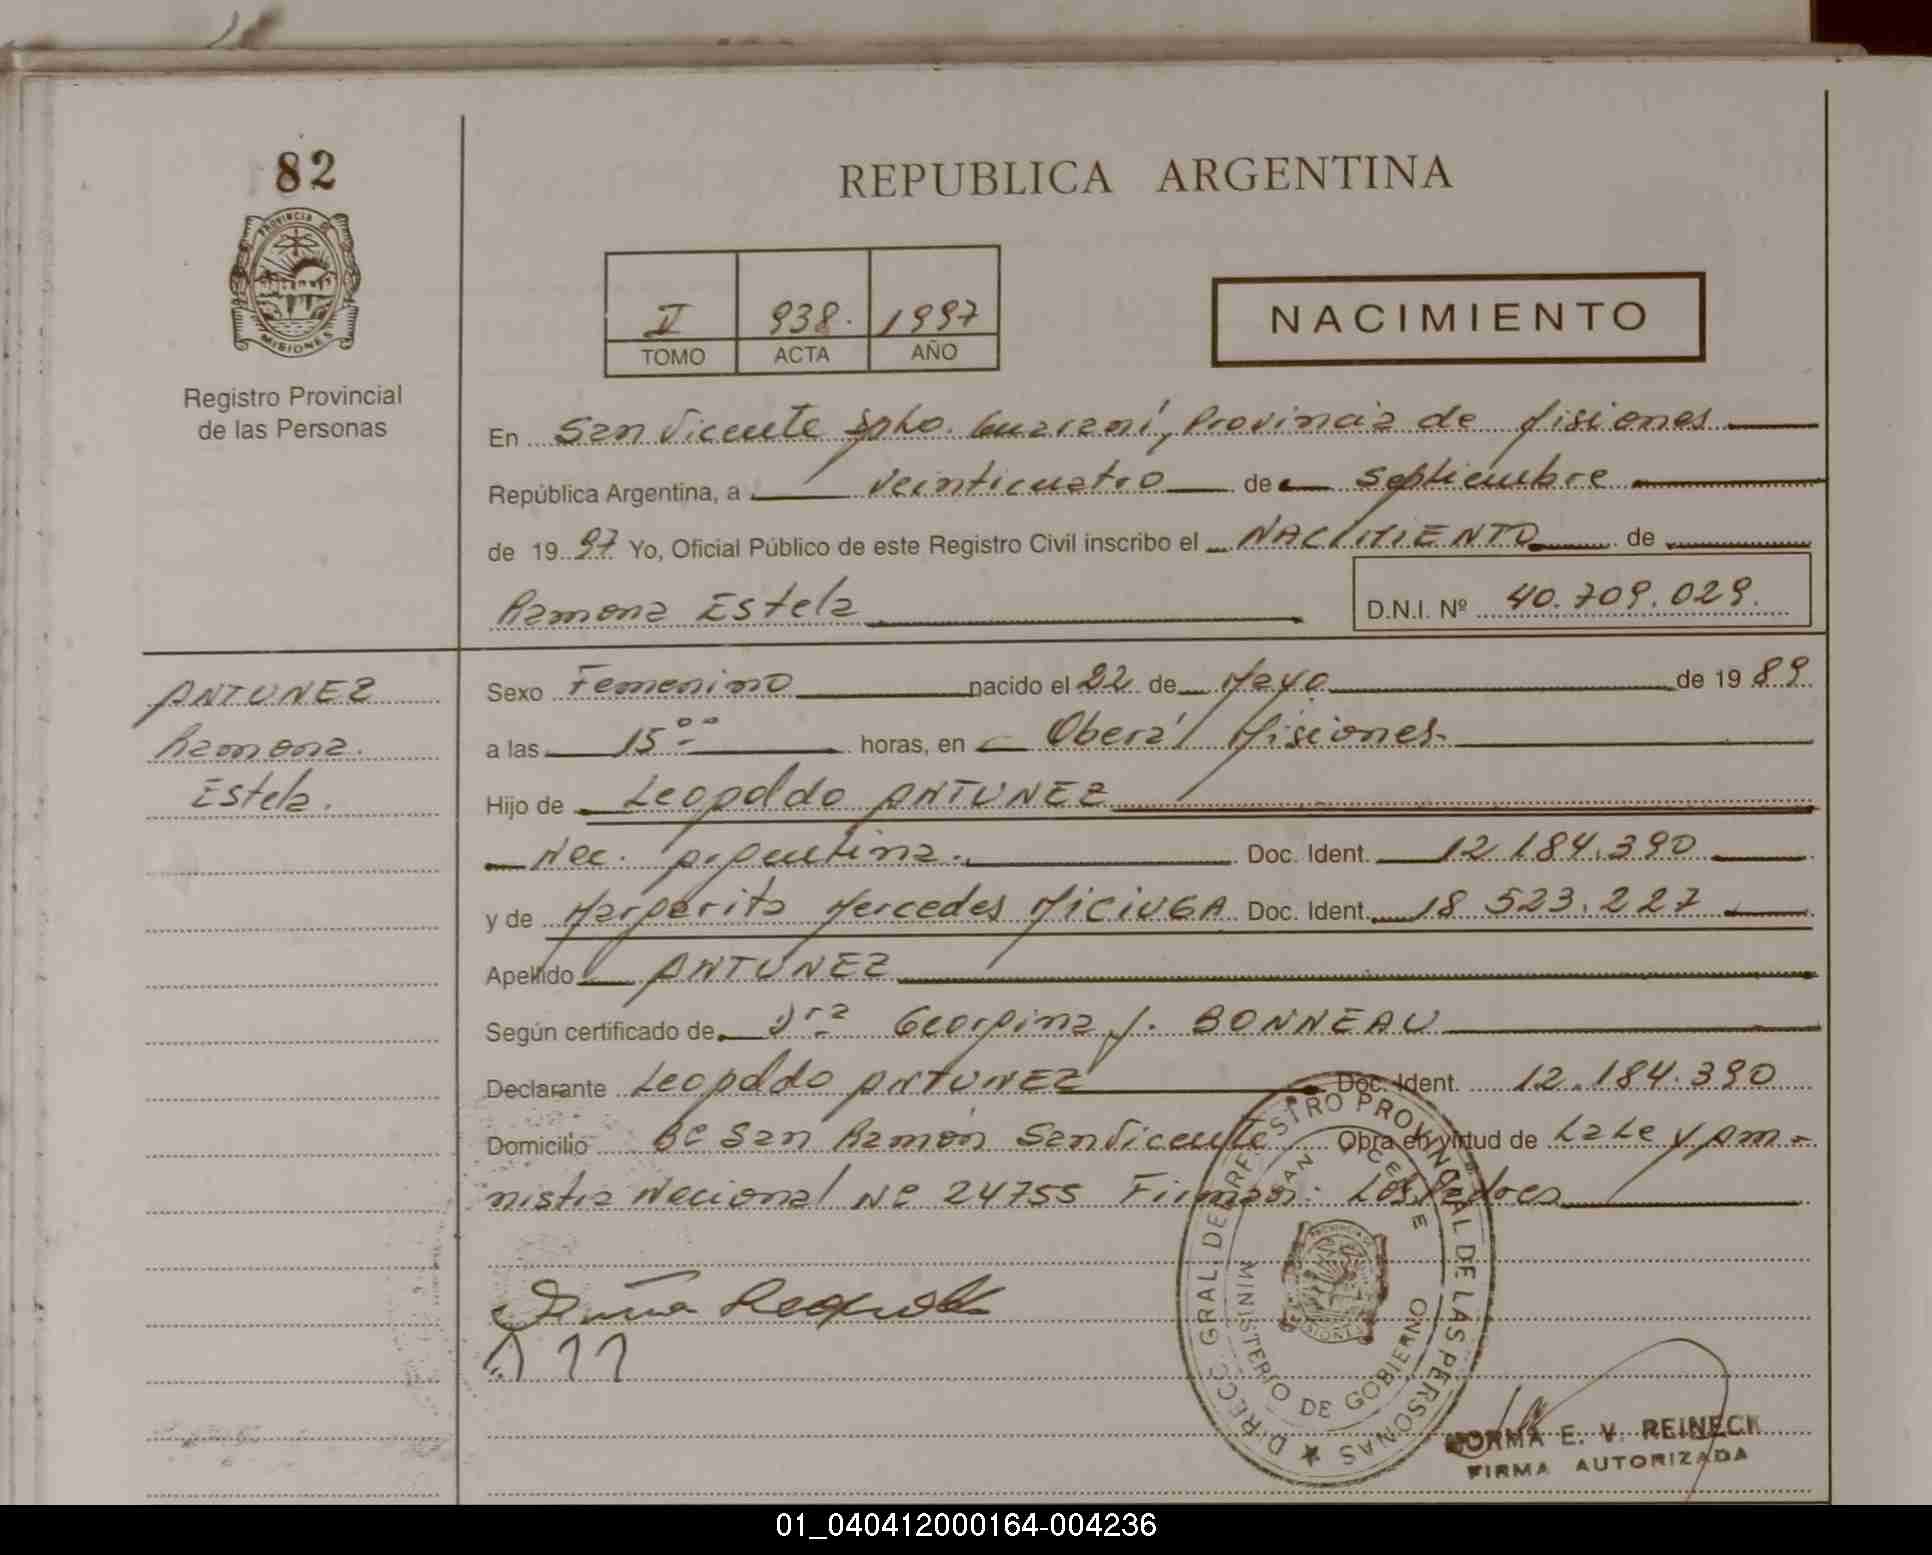 82
PROVINCIA DE
MISIONES
Registro Provincial
de las Personas
REPUBLICA ARGENTINA
II 938. 1997
TOMO ACTA AÑO
NACIMIENTO
En San Vicente Dpto. Guaraní, Provincia de Misiones
República Argentina, a veinticuatro de Septiembre
de 1997 Yo, Oficial Público de este Registro Civil inscribo el NACIMIENTO de
Ramona Estela D.N.I. Nº 40.709.029.
ANTUNEZ
Ramona.
Estela.
Sexo Femenino nacido el 22 de Mayo de 1989
a las 15 oo horas, en Oberá Misiones.
Hijo de Leopoldo ANTUNEZ
Nac. Argentina. Doc. Ident. 12.184.390
y de Margarita Mercedes MICIUGA Doc. Ident. 18 523.227
Apellido ANTUNEZ
Según certificado de Dra Georgina J. BONNEAU
Declarante Leopoldo ANTUNEZ Doc. Ident. 12.184.390
Domicilio Bº San Ramón San Vicente Obra en virtud de La Ley Am-
nistia Nacional Nº 24755 Firman: Los Padres
DIRECC. GRAL. DE REGISTRO PROVINCIAL DE LAS PERSONAS
SAN VICENTE
MINISTERIO DE GOBIERNO
NORMA E. V. REINECK
FIRMA AUTORIZADA
01_040412000164-004236